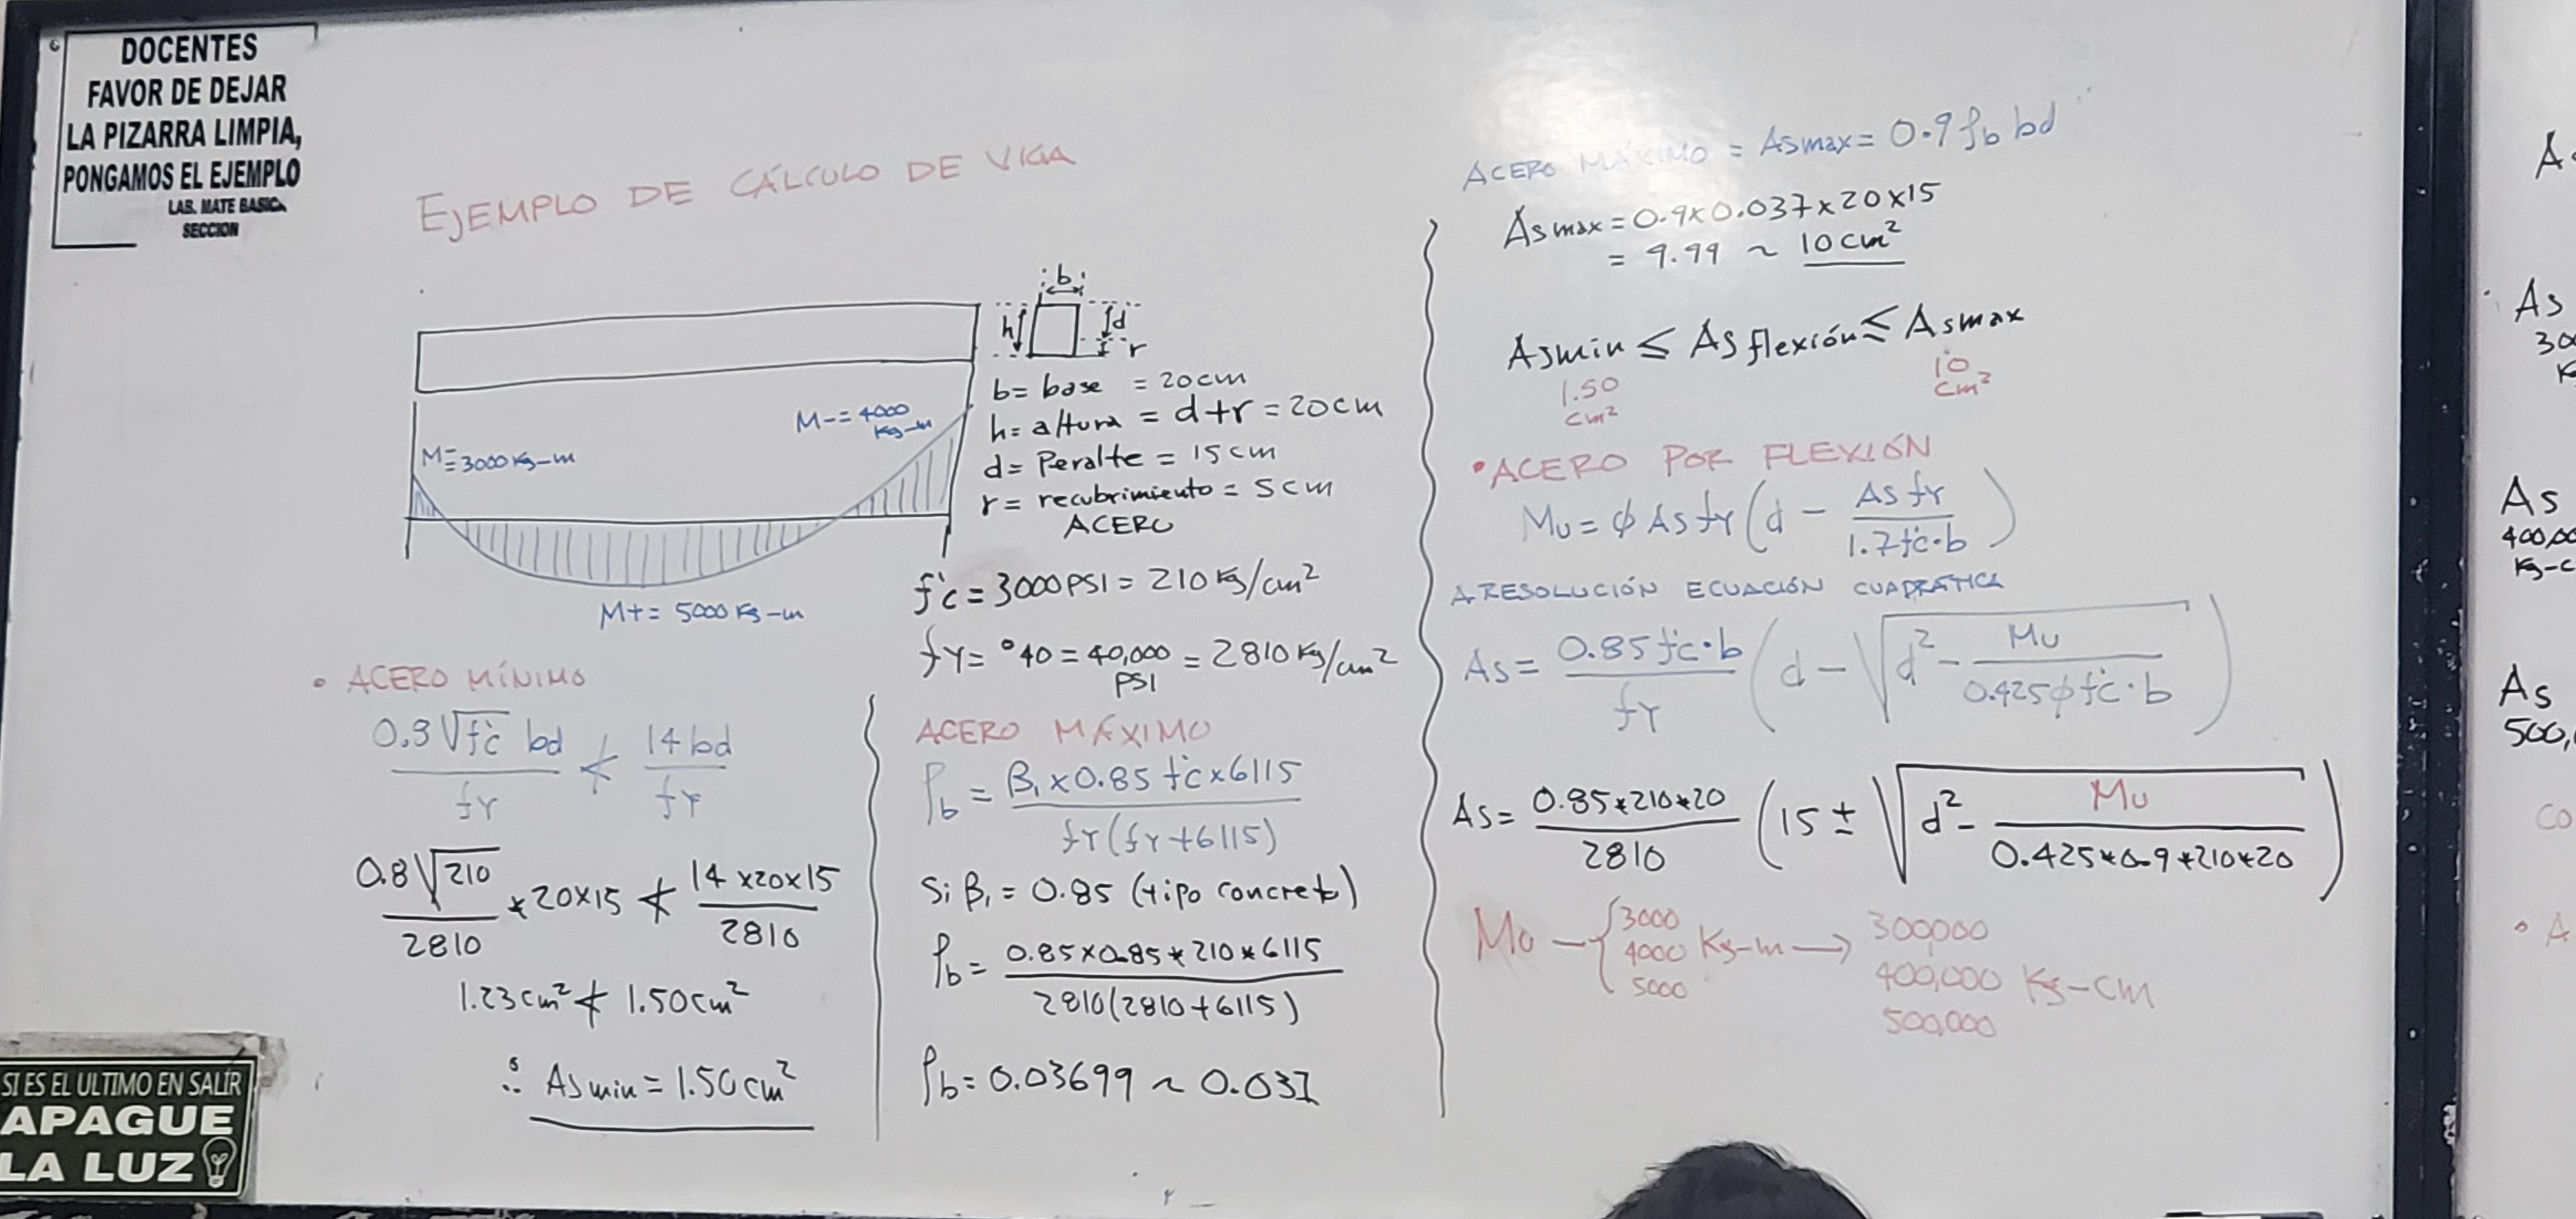 DOCENTES
FAVOR DE DEJAR
LA PIZARRA LIMPIA,
PONGAMOS EL EJEMPLO
LAB. MATE BASICA
SECCION
EJEMPLO DE CÁLCULO DE VIGA
b
h d
r
b= base = 20cm
h= altura = d+r = 20cm
d= Peralte = 15cm
r= recubrimiento = 5cm
ACERO
M-= 4000
Kg-m
M-
=3000 Kg-m
M+= 5000 Kg-m
f'c = 3000 PSI = 210 Kg/cm²
fy= °40 = 40,000 PSI = 2810 Kg/cm²
• ACERO MÍNIMO
0.8√f'c bd / fy ≮ 14bd / fy
0.8√210 / 2810 * 20x15 ≮ 14x20x15 / 2810
1.23cm² ≮ 1.50cm²
∴ Asmin = 1.50cm²
ACERO MÁXIMO
ρb = β1 x 0.85 f'c x 6115 / fy(fy+6115)
Si β1 = 0.85 (tipo concreto)
ρb = 0.85x0.85*210*6115 / 2810(2810+6115)
ρb = 0.03699 ~ 0.037
ACERO MÁXIMO = Asmax = 0.9 ρb bd
Asmax = 0.9x0.037x20x15
= 9.99 ~ 10cm²
Asmin ≤ As flexión ≤ Asmax
1.50 cm² 10 cm²
• ACERO POR FLEXIÓN
Mu = φ As fy (d - As fy / 1.7f'c·b)
RESOLUCIÓN ECUACIÓN CUADRÁTICA
As = 0.85 f'c·b / fy (d - √(d² - Mu / 0.425φf'c·b))
As = 0.85*210*20 / 2810 (15 ± √(d² - Mu / 0.425*0.9*210*20))
Mu — { 3000 4000 5000 Kg-m → 300,000 400,000 500,000 Kg-cm
As
As
400,00
Kg-c
As
500,
CO
• A
SI ES EL ULTIMO EN SALIR
APAGUE
LA LUZ